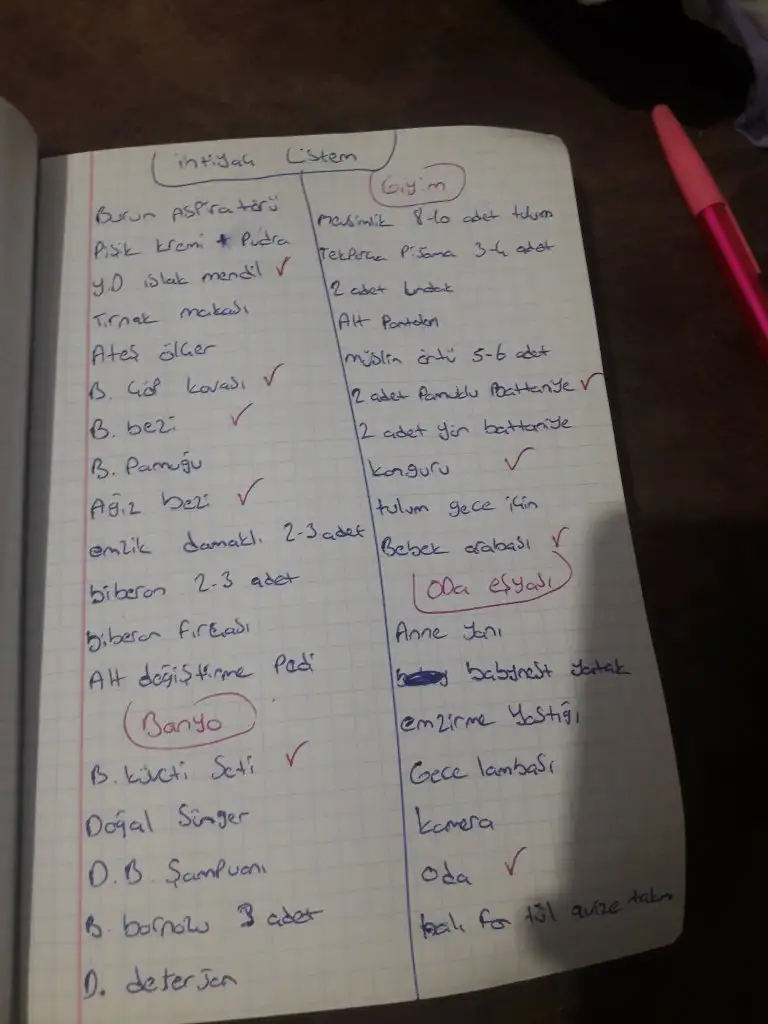 ihtiyaç Listem
Burun Aspiratörü
Pişik kremi + Pudra
Y.D ıslak mendil ✓
Tırnak makası
Ateş ölçer
B. Çöp kovası ✓
B. bezi ✓
B. Pamuğu
Ağız bezi ✓
emzik damaklı 2-3 adet
biberon 2-3 adet
biberon fırçası
Alt değiştirme Padi
Banyo
B. küveti Seti ✓
Doğal Sünger
D.B. Şampuanı
B. bornozu 3 adet
D. deterjan
Giyim
mevsimlik 8-10 adet tulum
TekParça Pijama 3-4 adet
2 adet kundak
Alt Pantolon
müslin örtü 5-6 adet
2 adet Pamuklu Battaniye ✓
2 adet yün battaniye
kanguru ✓
tulum gece için
Bebek arabası ✓
Oda eşyası
Anne Yanı
babynest yatak
emzirme Yastığı
Gece lambası
kamera
Oda ✓
halı fon tül avize takım